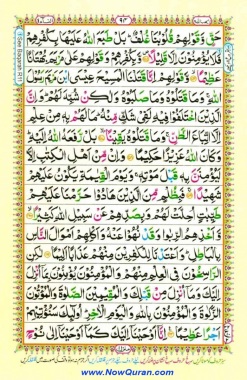 حَقٍّ وَّقَوْلِهِمْ قُلُوْبُنَا غُلْفٌ بَلْ طَبَعَ اللّٰهُ عَلَيْهَا بِكُفْرِهِمْ
فَلَا يُؤْمِنُوْنَ اِلَّا قَلِيْلًا وَّبِكُفْرِهِمْ وَقَوْلِهِمْ عَلٰى مَرْيَمَ بُهْتَانًا
عَظِيْمًا وَّقَوْلِهِمْ اِنَّا قَتَلْنَا الْمَسِيْحَ عِيْسَى ابْنَ مَرْيَمَ رَسُوْلَ
اللّٰهِ وَمَا قَتَلُوْهُ وَمَا صَلَبُوْهُ وَلٰكِنْ شُبِّهَ لَهُمْ وَاِنَّ
الَّذِيْنَ اخْتَلَفُوْا فِيْهِ لَفِيْ شَكٍّ مِّنْهُ مَا لَهُمْ بِهٖ مِنْ عِلْمٍ
اِلَّا اتِّبَاعَ الظَّنِّ وَمَا قَتَلُوْهُ يَقِيْنًا بَلْ رَّفَعَهُ اللّٰهُ اِلَيْهِ
وَكَانَ اللّٰهُ عَزِيْزًا حَكِيْمًا وَاِنْ مِّنْ اَهْلِ الْكِتٰبِ اِلَّا
لَيُؤْمِنَنَّ بِهٖ قَبْلَ مَوْتِهٖ وَيَوْمَ الْقِيٰمَةِ يَكُوْنُ عَلَيْهِمْ
شَهِيْدًا فَبِظُلْمٍ مِّنَ الَّذِيْنَ هَادُوْا حَرَّمْنَا عَلَيْهِمْ
طَيِّبٰتٍ اُحِلَّتْ لَهُمْ وَبِصَدِّهِمْ عَنْ سَبِيْلِ اللّٰهِ كَثِيْرًا
وَّاَخْذِهِمُ الرِّبٰوا وَقَدْ نُهُوْا عَنْهُ وَاَكْلِهِمْ اَمْوَالَ النَّاسِ
بِالْبَاطِلِ وَاَعْتَدْنَا لِلْكٰفِرِيْنَ مِنْهُمْ عَذَابًا اَلِيْمًا لٰكِنِ
الرّٰسِخُوْنَ فِي الْعِلْمِ مِنْهُمْ وَالْمُؤْمِنُوْنَ يُؤْمِنُوْنَ بِمَا اُنْزِلَ
اِلَيْكَ وَمَا اُنْزِلَ مِنْ قَبْلِكَ وَالْمُقِيْمِيْنَ الصَّلٰوةَ وَالْمُؤْتُوْنَ
الزَّكٰوةَ وَالْمُؤْمِنُوْنَ بِاللّٰهِ وَالْيَوْمِ الْاٰخِرِ اُولٰٓئِكَ سَنُؤْتِيْهِمْ
اَجْرًا عَظِيْمًا اِنَّا اَوْحَيْنَا اِلَيْكَ كَمَا اَوْحَيْنَا اِلٰى نُوْحٍ
www.NowQuran.com